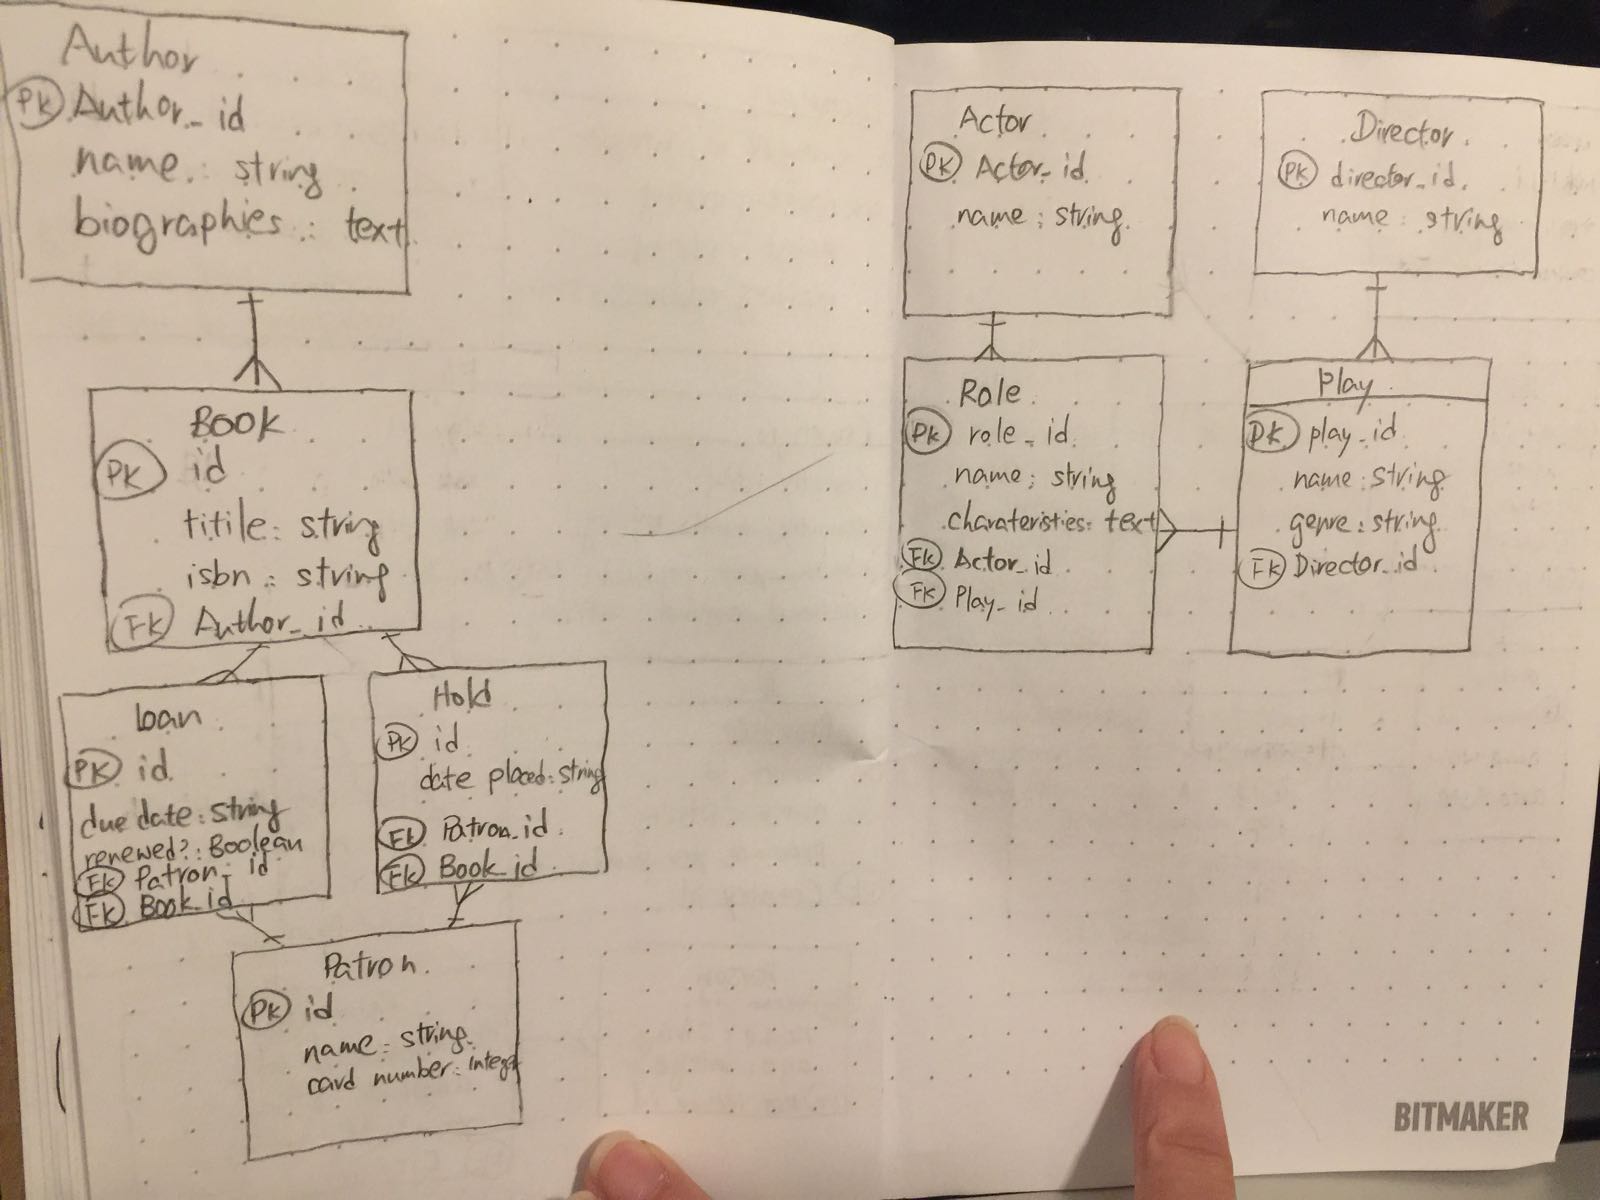 Author
PK Author_id
name : string
biographies : text
Book
PK id
titile : string
isbn : string
FK Author_id
loan
PK id
due date : string
renewed? : Boolean
FK Patron_id
FK Book_id
Hold
PK id
date placed : string
FK Patron_id
FK Book_id
Patron
PK id
name : string
card number : integer
Actor
PK Actor_id
name : string
Director
PK director_id
name : string
Role
PK role_id
name : string
charateristies : text
FK Actor_id
FK Play_id
Play
PK play_id
name : string
genre : string
FK Director_id
BITMAKER